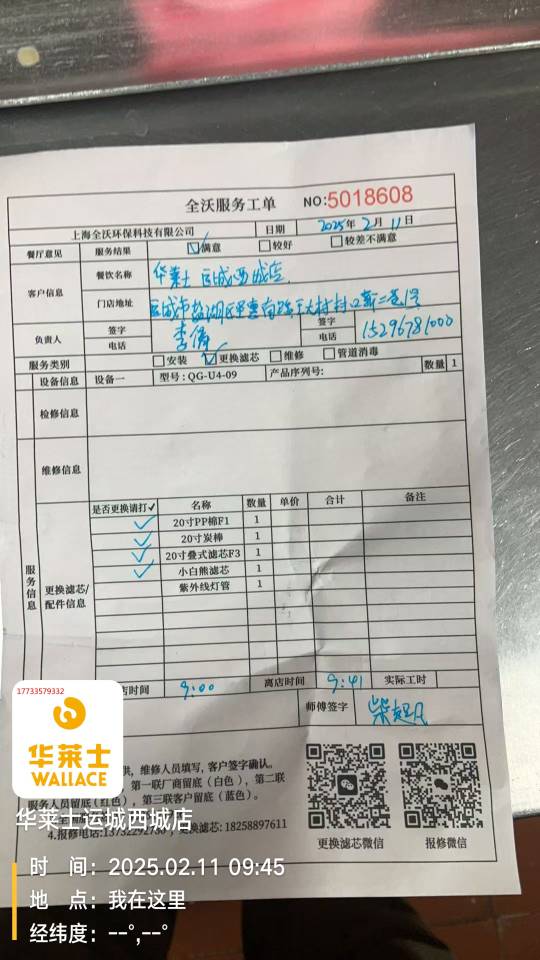 全沃服务工单 NO:5018608
上海全沃环保科技有限公司 日期 2025年2月11日
餐厅意见 服务结果 ☑满意 □较好 □较差不满意
客户信息 餐饮名称 华莱士 运城西城店
门店地址
负责人 签字 签字
电话 电话 15296781000
服务类别 □安装 ☑更换滤芯 □维修 □管道消毒
设备信息 设备一 型号：QG-U4-09 产品序列号： 数量 1
检修信息
维修信息
服务信息
更换滤芯/配件信息
是否更换请打✓ 名称 数量 单价 合计 备注
✓ 20寸PP棉F1 1
✓ 20寸炭棒 1
✓ 20寸叠式滤芯F3 1
✓ 小白熊滤芯 1
紫外线灯管 1
店时间 9:00 离店时间 9:41 实际工时
师傅签字
供，维修人员填写，客户签字确认。
第一联厂商留底（白色），第二联
服务人员留底（红色），第三联客户留底（蓝色）。
4.报修电话:13732292780 更换滤芯: 18258897611
更换滤芯微信 报修微信
17733579332
华莱士
WALLACE
华莱士运城西城店
时 间：2025.02.11 09:45
地 点：我在这里
经纬度：--°,--°